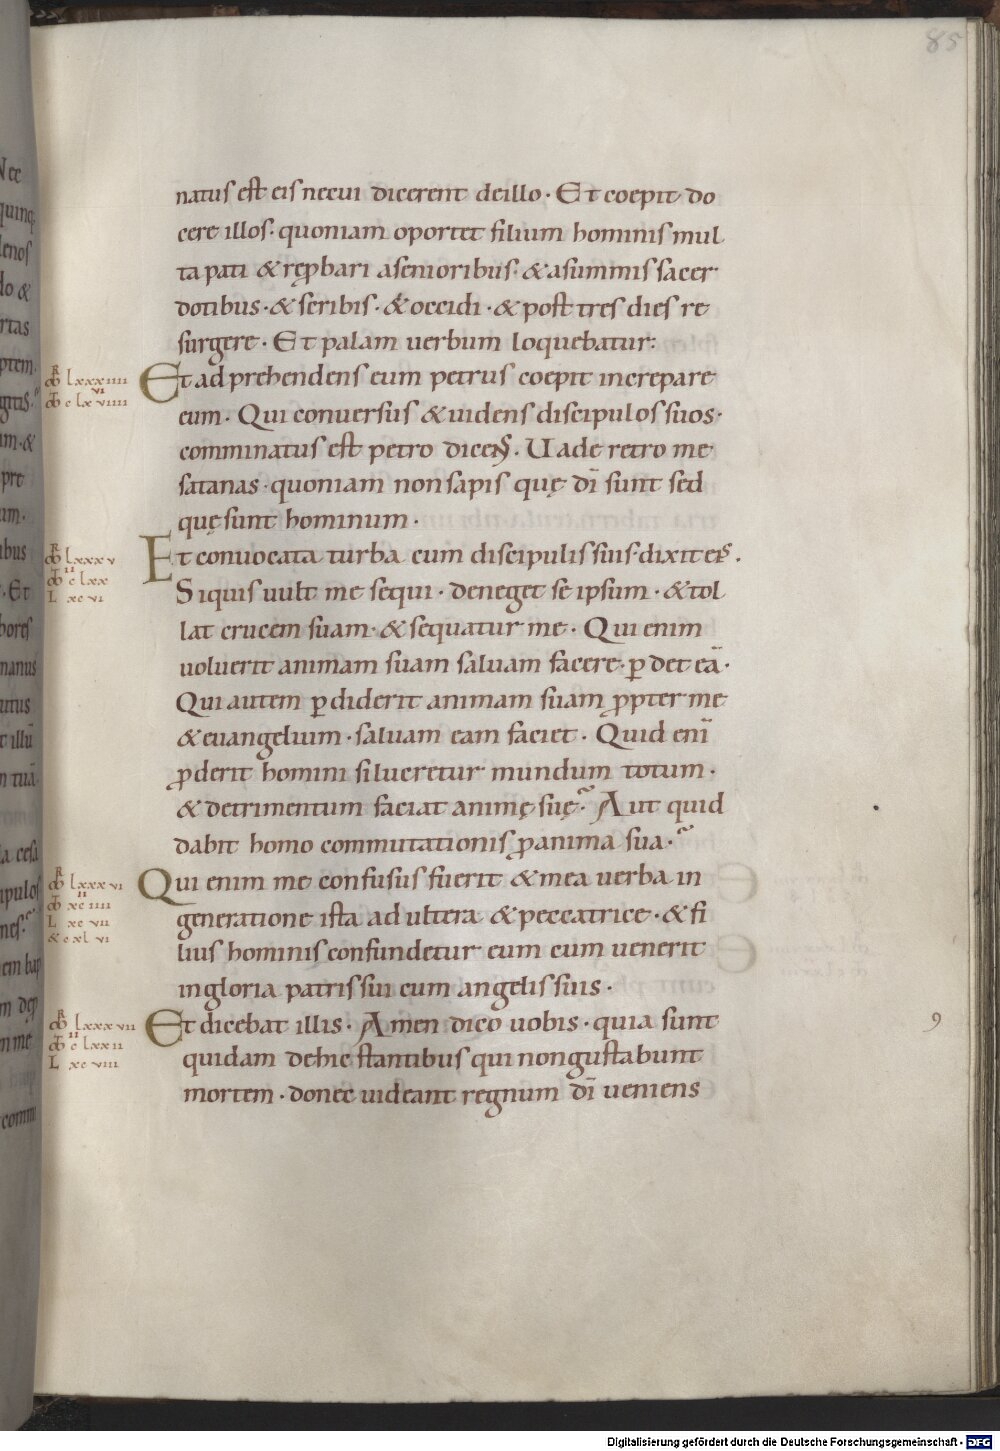 85
natus est eis necui dicerent deillo · Et coepit do
cere illos · quoniam oportet filium hominis mul
ta pati & rep̱bari asenioribus · & asummis sacer
dotibus · & scribis · & occidi · & post tres dies re
surgere · Et palam uerbum loquebatur:
Et adprehendens eum petrus coepit increpare
eum · Qui conuersus & uidens discipulos suos ·
comminatus est petro dicens · Uade retro me
satanas · quoniam non sapis quę dī sunt sed
quę sunt hominum ·
Et conuocata turba cum discipulis suis · dixit eis ·
Siquis uult me sequi · deneget se ipsum · & tol
lat crucem suam · & sequatur me · Qui enim
uoluerit animam suam saluam facere · ꝑdet eā ·
Qui autem ꝑdiderit animam suam ꝓpter me
& euangelium · saluam eam faciet · Quid enī
ꝓderit homini si lucretur mundum totum ·
& detrimentum faciat animę suę · Aut quid
dabit homo commutationis ꝓanima sua ·
Qui enim me confusus fuerit & mea uerba in
generatione ista adultera & peccatrice · & fi
lius hominis confundetur eum cum uenerit
ingloria patris sui cum angelis suis ·
Et dicebat illis · Amen dico uobis · quia sunt
quidam dehic stantibus qui non gustabunt
mortem · donec uideant regnum dī ueniens
lxxxiiii
lxxxv
c lxx
L xcvi
lxxxvi
xciiii
L xcvii
lxxxvii
c lxxii
L xcviii
9
Digitalisierung gefördert durch die Deutsche Forschungsgemeinschaft - DFG